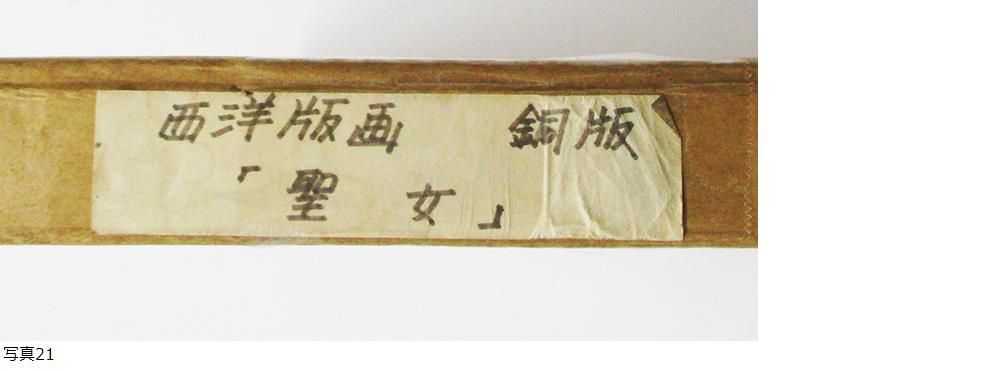 西洋版画　銅版
「聖　女」
写真21